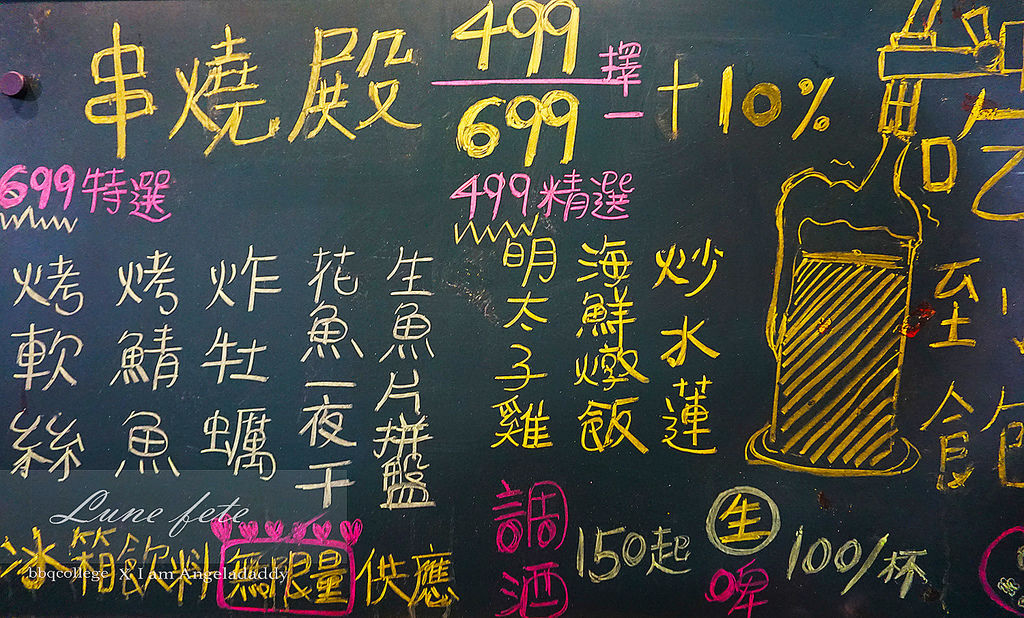 串燒殿 499 擇一 +10%
699
吃
至
飽
699特選
生魚片拼盤
花魚一夜干
炸牡蠣
烤鯖魚
烤軟絲
499精選
炒水蓮
海鮮燉飯
明太子雞
冰箱飲料無限量供應
調酒 150起
生啤 100/杯
Lune fete
bbqcollege X I am Angeladaddy